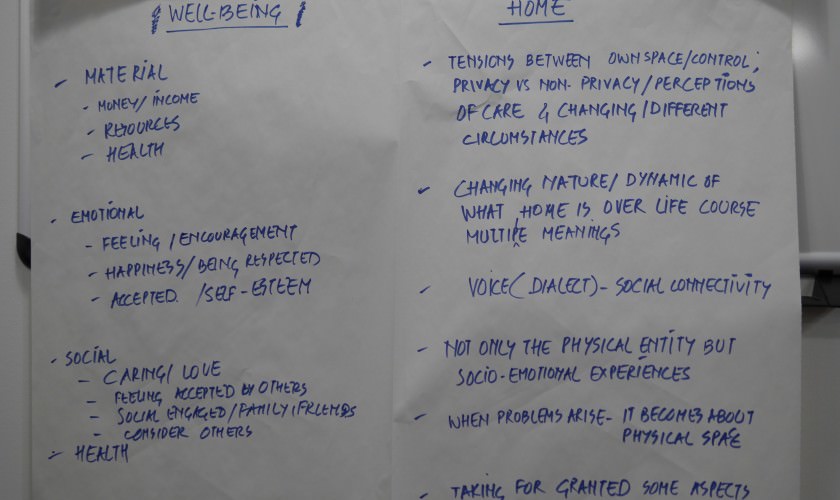 WELL-BEING
- MATERIAL
- MONEY/INCOME
- RESOURCES
- HEALTH
- EMOTIONAL
- FEELING/ENCOURAGEMENT
- HAPPINESS/BEING RESPECTED
- ACCEPTED. /SELF-ESTEEM
- SOCIAL
- CARING/ LOVE
- FEELING ACCEPTED BY OTHERS
- SOCIAL ENGAGED/FAMILY, FRIENDS
- CONSIDER OTHERS
- HEALTH
HOME
- TENSIONS BETWEEN OWN SPACE/CONTROL;
PRIVACY VS NON-PRIVACY/PERCEPTIONS
OF CARE & CHANGING/DIFFERENT
CIRCUMSTANCES
- CHANGING NATURE/DYNAMIC OF
WHAT HOME IS OVER LIFE COURSE
MULTIPLE MEANINGS
- VOICE (DIALECT)- SOCIAL CONNECTIVITY
- NOT ONLY THE PHYSICAL ENTITY BUT
SOCIO-EMOTIONAL EXPERIENCES
- WHEN PROBLEMS ARISE- IT BECOMES ABOUT
PHYSICAL SPACE
- TAKING FOR GRANTED SOME ASPECTS